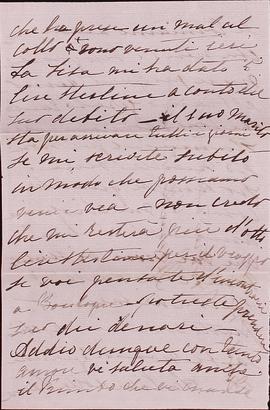 che ha preso un mal al
collo sono venuti ieri
La Lisa mi ha dato
Lire sterline a conto del
suo debito — il suo marito
sta per arrivare tutti i giorni
Se mi scrivete subito
in modo che possiamo
via — non credo
che mi resterà più d'otto
Lire sterline pel viaggio
se voi pensate
a potreste
dei denari —
Addio dunque con tanto
vi saluta
il che vi manda